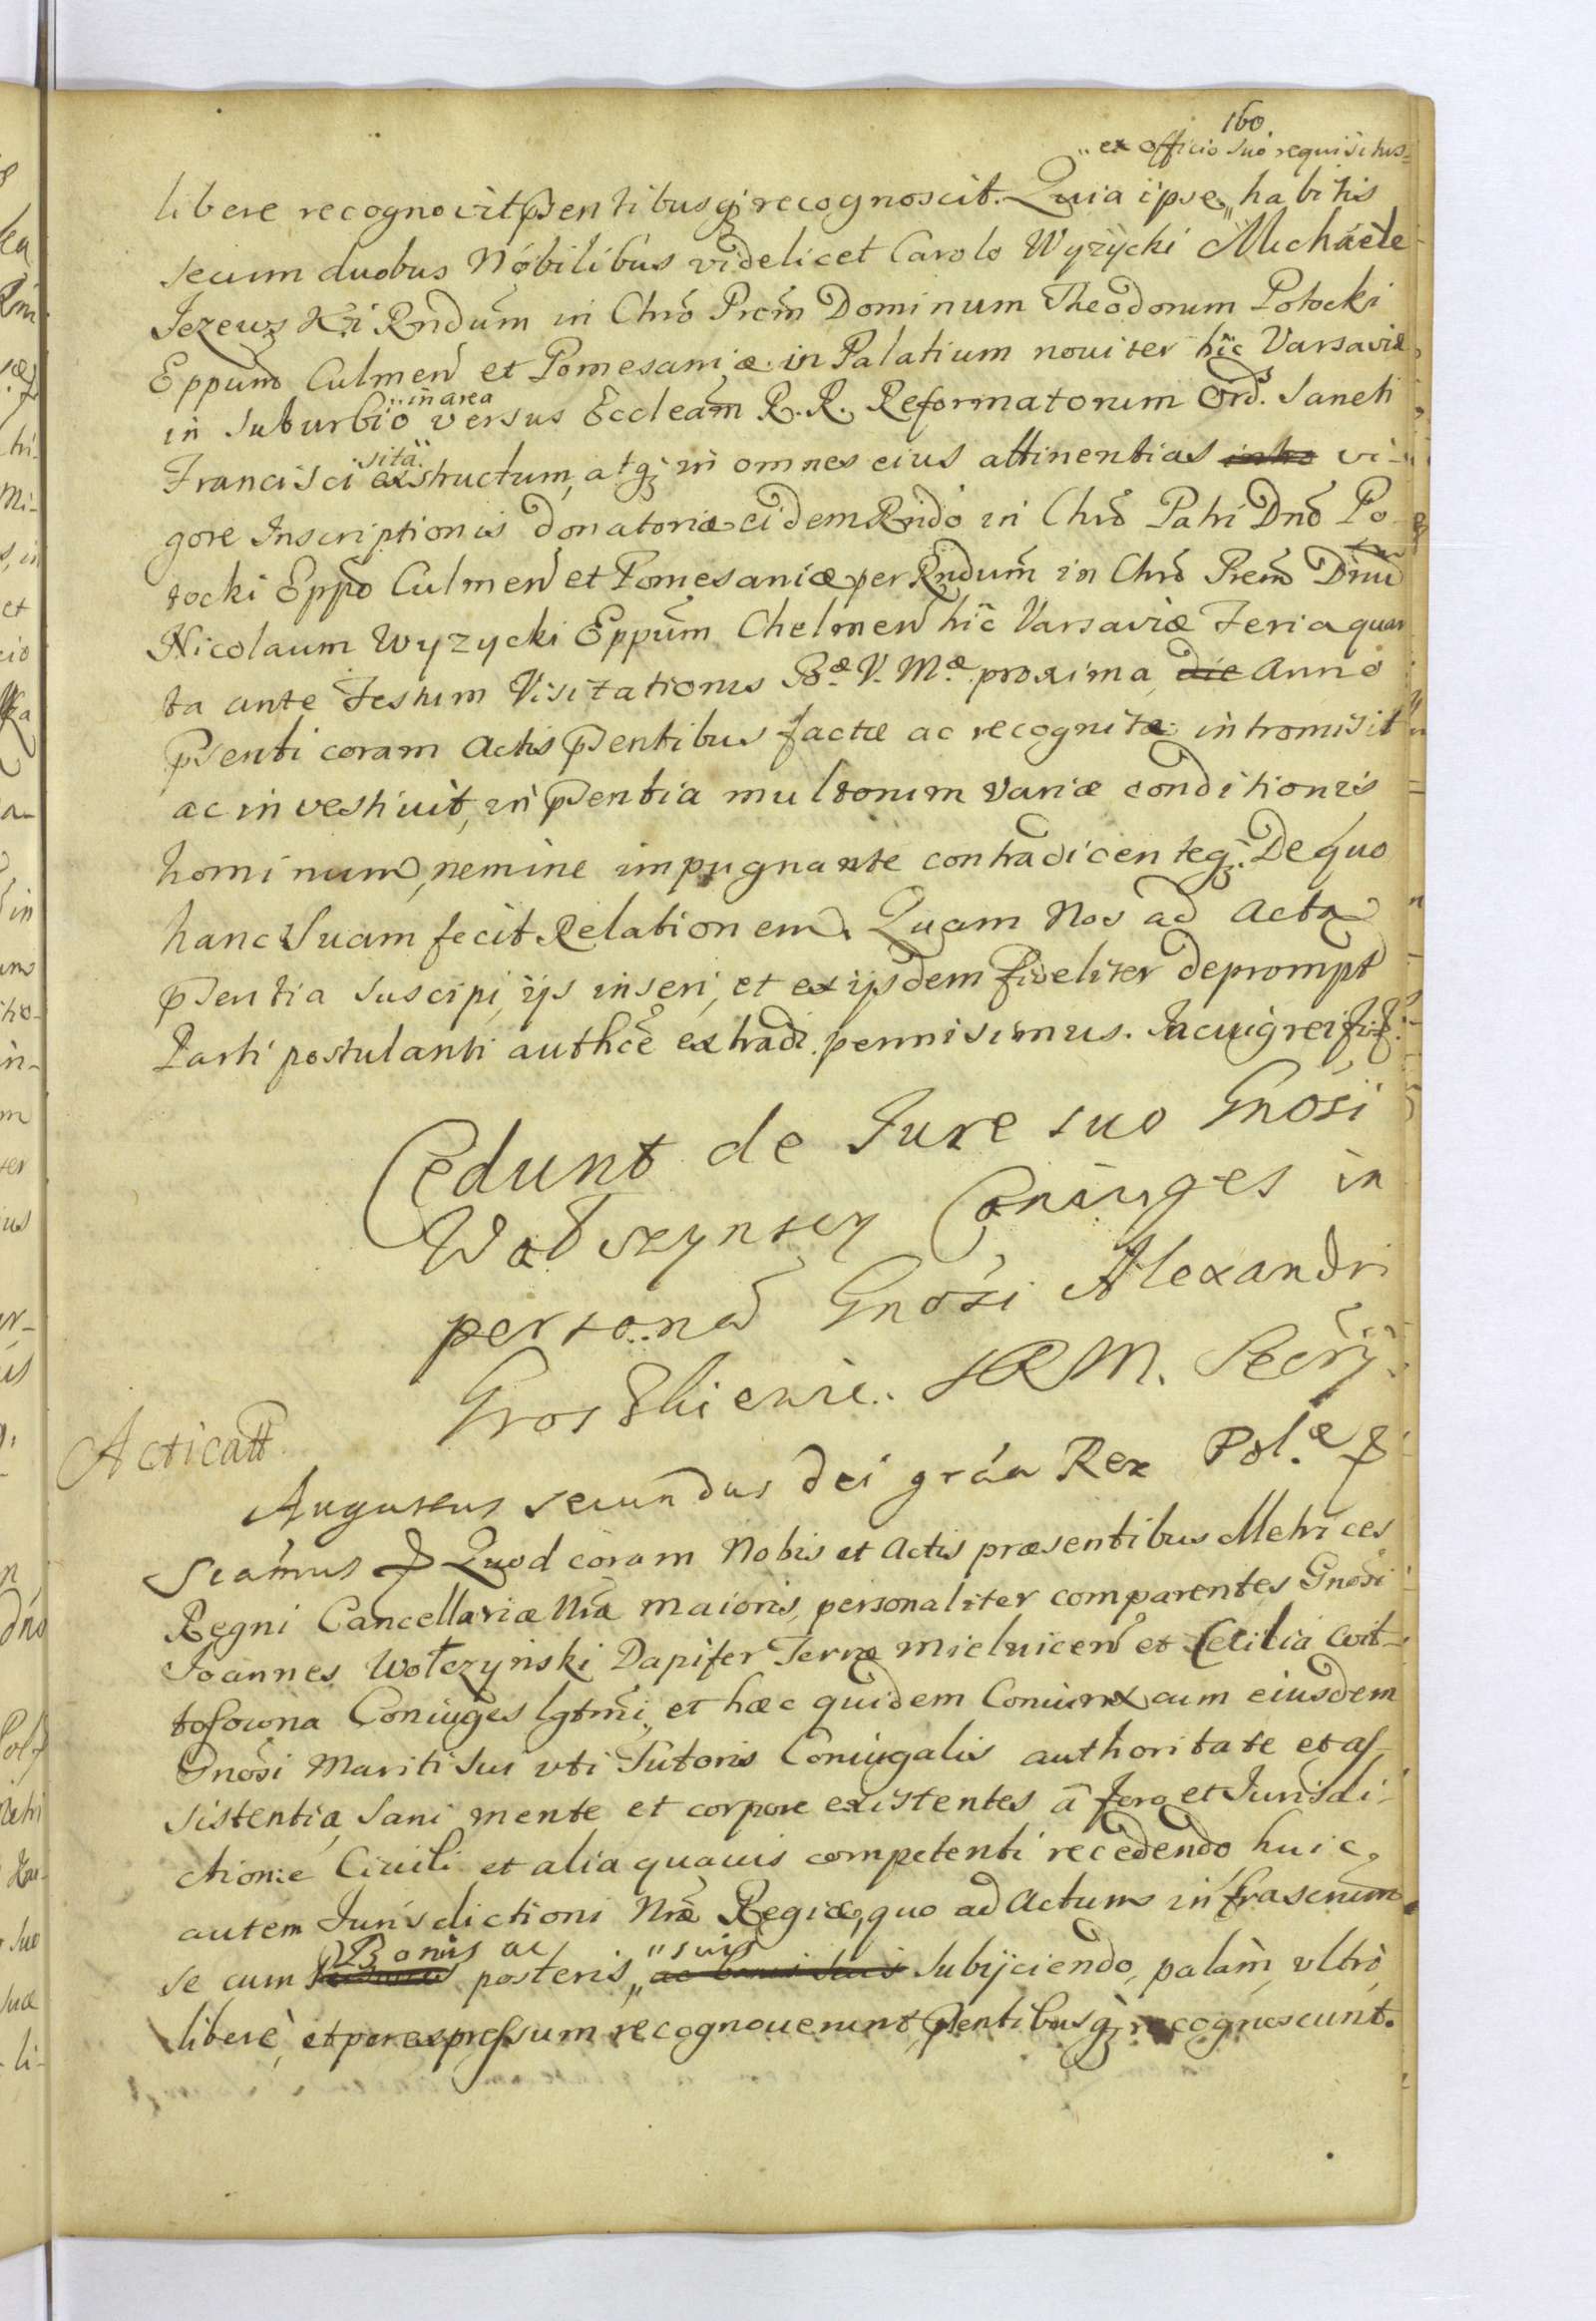 160
„ex officio suo requisitus
libere recognovit pͥsentibusqȝ recognoscit. Quia ipse „ habitis
secum duobus Nobilibus videlicet Carolo Wyzycki Michaele
Jezewski Rndum in Chro Prem Dominum Theodorum Potocki
Eppum Culmen et Pomesaniæ in Palatium noviter hic Varsaviæ
„in area
in suburbio versus Eccleam R. R. Reformatorum Ord. Sancti
sita
Francisci exstructum, atqȝ in omnes eius attinentias intro vi-
gore Inscriptionis donatoriæ eidem Rndo in Chro Patri Dno Po-
tocki Eppo Culmen et Pomesaniæ per Rndum in Chro Prem Dnum
Nicolaum Wyzycki Eppum Chelmen hic Varsaviæ Feria quar
ta ante Festum Visitationis Bæ. V. Mæ. proxima die Anno
pͥsenti coram Actis pͥsentibus factæ ac recognitæ intromisit
ac investivit, in pͥsentia multorum variæ conditionis
hominum, nemine impugnante contradicenteqȝ. De quo
hanc suam fecit Relationem. Quam Nos ad Acta
pͥsentia suscipi, ijs inseri, et ex ijsdem fideliter deprompt
Parti postulanti authce extradi permisimus. In cuiqȝ rei fid
Cedunt de Jure suo Gnosi
Wołszynscy Coniuges in
personam Gnosi Alexandri
SRM. Secry.
Acticatt
Augustus secundus dei gráa Rex Pol.æ
Scamus Quod coram Nobis et Actis præsentibus Metrices
Regni Cancellariæ Nræ maioris, personaliter comparentes Gnosi
Joannes Wołczynski Dapifer Terræ Mielnicen et Cecilia Wit-
tosowna Coniuges lgtmi, et hæc quidem Coniunx cum eiusdem
Gnosi Mariti sui uti Tutoris Coniugalis authoritate et as-
sistentia, sani mente et corpore existentes â foro et Jurisdi-
ctione Civili et alia quavis competenti recedendo, huic
autem Jurisdictioni Nræ Regiæ, quo ad Actum infrascrium
Bonis ac „suis
se cum posteris, „ ac bonis suis subijciendo, palàm, vltrò,
liberè, et per expressum recognoverunt, pͥsentibusqȝ recognoscunt.